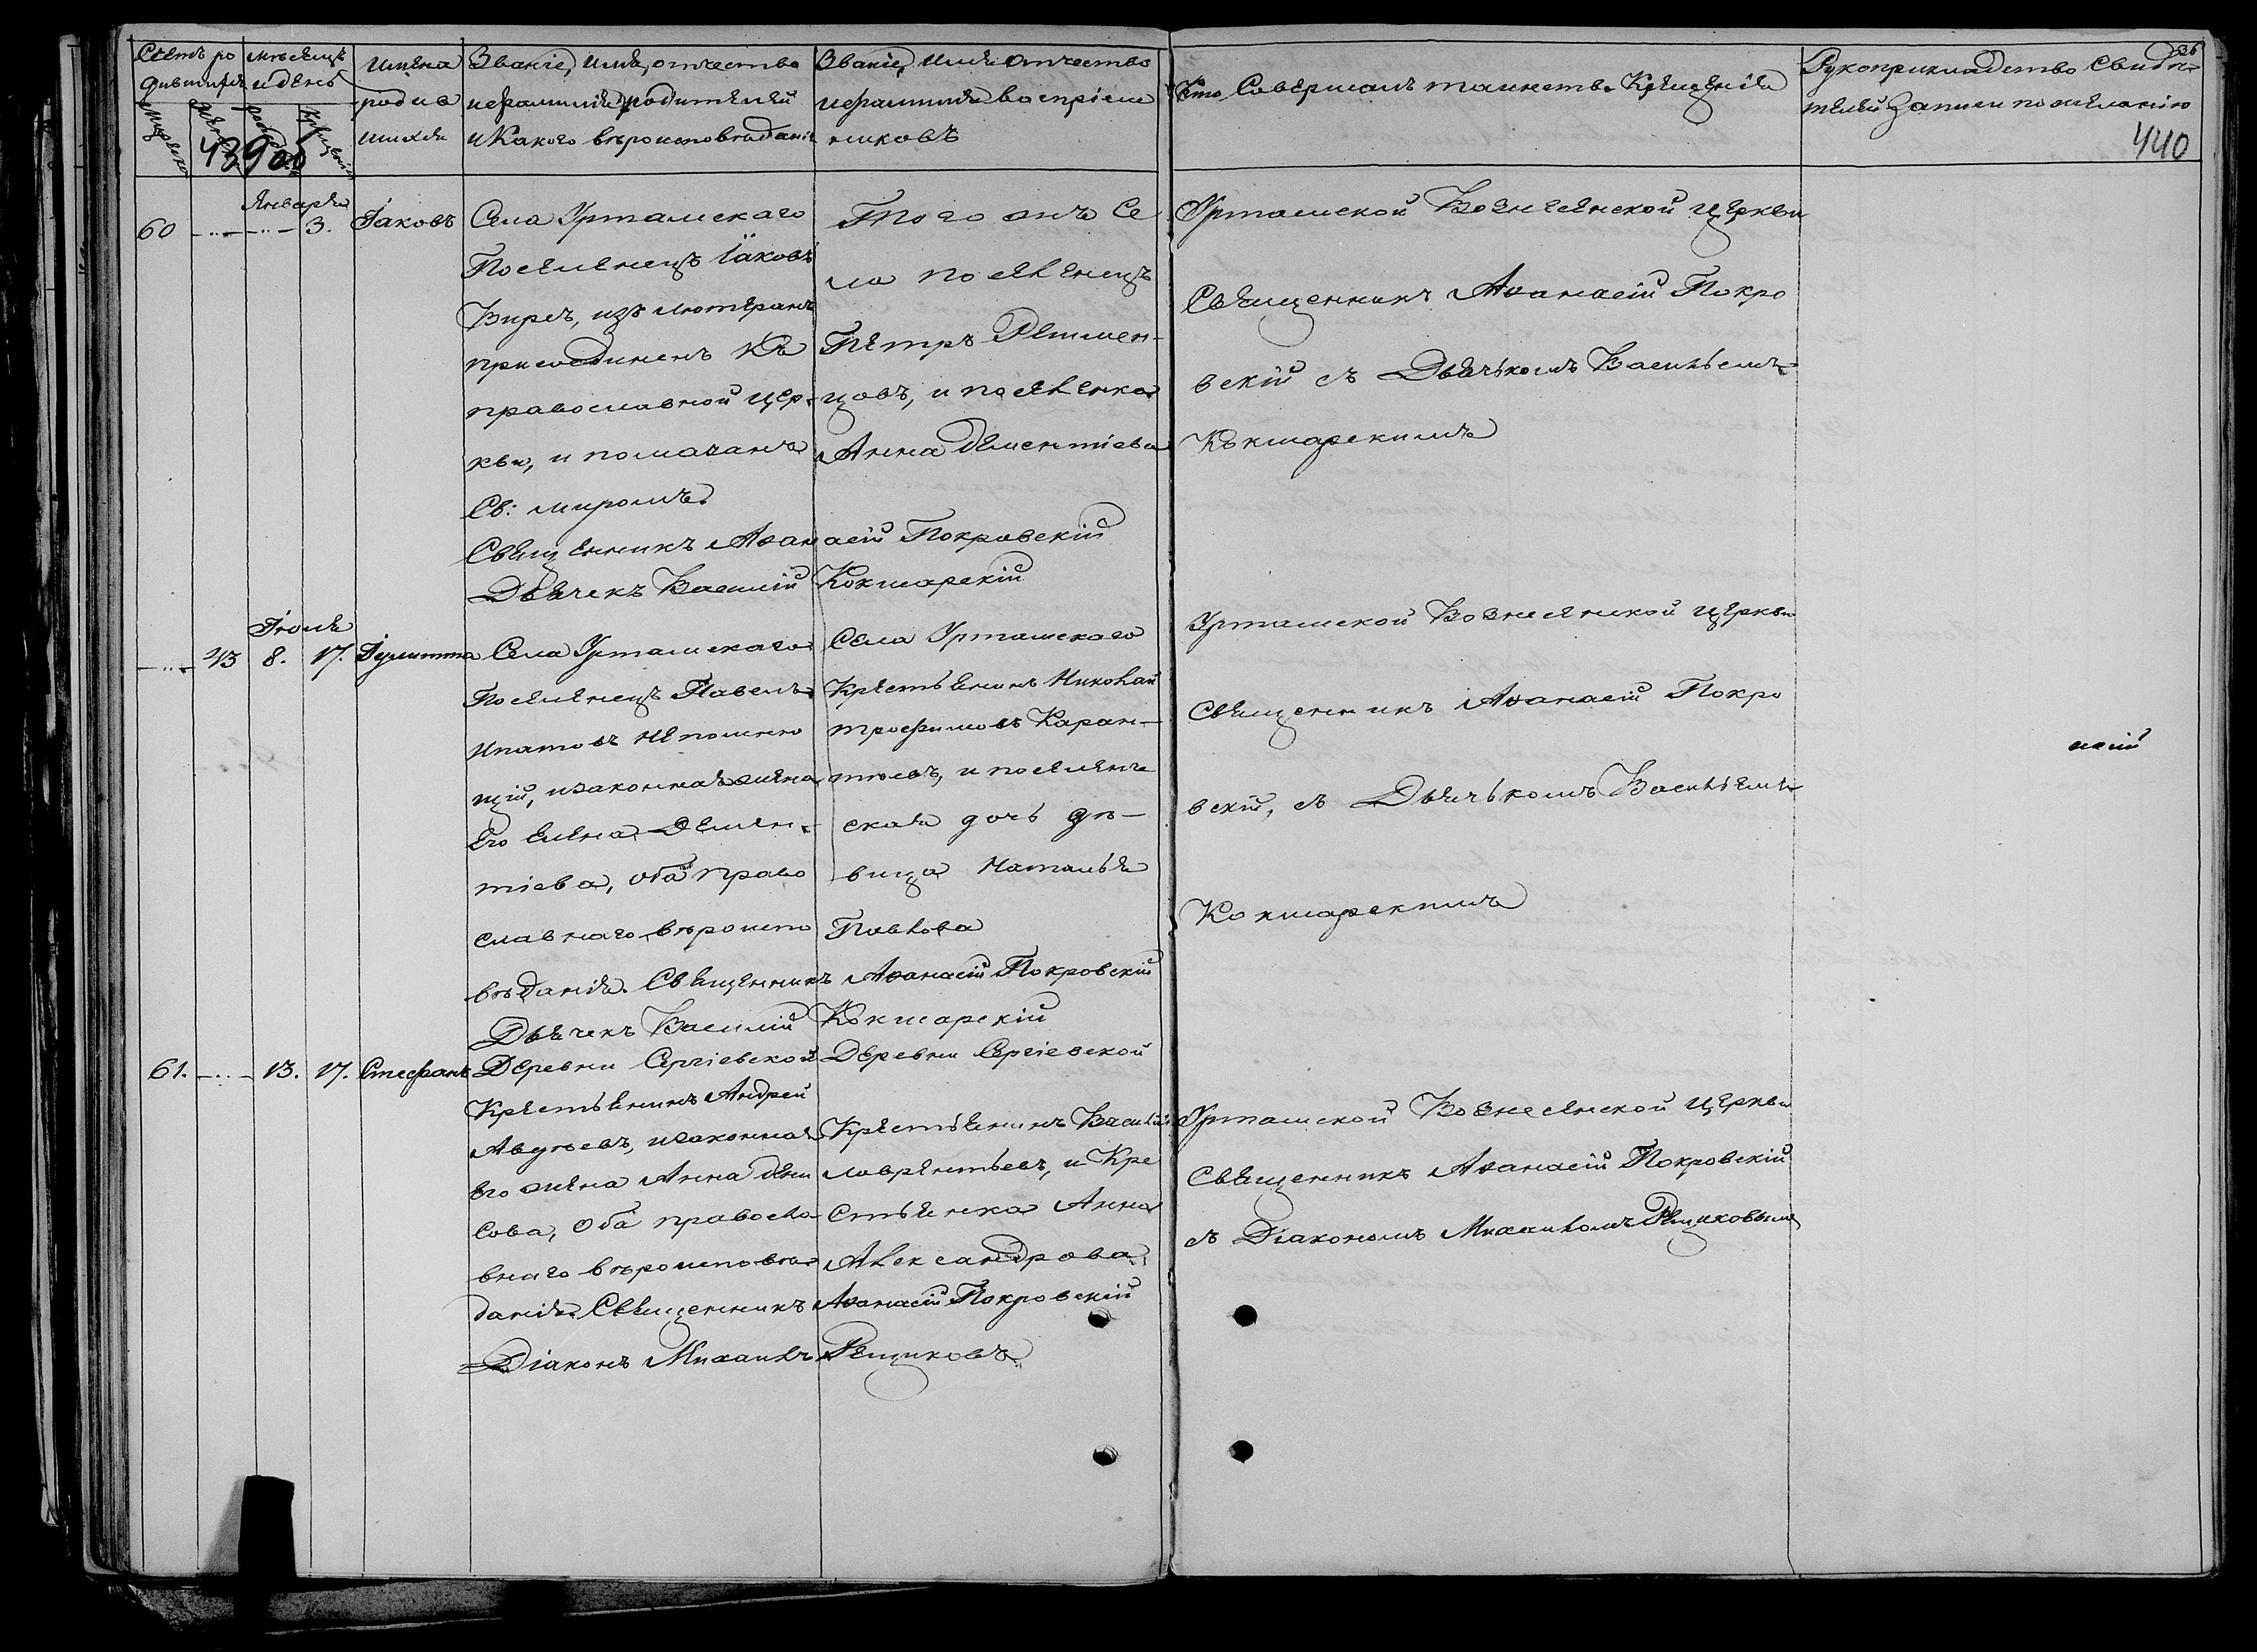 Счетъ ро
дившихся
мѣсяцъ
и день
Имена
родив
шихся
Званіе, имя, отчество
и фамилія родителей
и какого вѣроисповѣданія
Званіе, имя отчество
и фамилія воспріем
никовъ
Кто совершалъ таинство Крещенія
Рукоприкладство свидѣ-
телей записи по желанію
36
440
43900
Января
60 3. Іаковъ
Села Уртамскаго
Поселенецъ Іаковъ
Вирсъ, изъ лютеранъ
присоединенъ къ
православной цер-
кви, и помазанъ
Св: миромъ.
Священникъ Аѳанасій Покровскій
Дьячекъ Василій Кокшарскій
Того онъ Се
ла поселенецъ
Петръ
цовъ, и поселенка
Анна Дементіева
Уртамской Вознесенской церкви
Священникъ Аѳанасій Покро
вскій съ Дьячькомъ Васильемъ
Кокшарскимъ
Іюля
43 8. 17. Іулитта
Села Уртамскаго
Поселенецъ Павелъ
Ипатовъ Непомню
щій, изаконная жена
Его Елена Демен-
тіева, оба право
славнаго вѣроиспо
вѣданія. Священникъ Аѳанасій Покровскій
Дьячекъ Василій Кокшарскій
Села Уртамскаго
Крестьянинъ Николай
Трофимовъ Каран-
тьевъ, и поселенче
ская дочь дѣ-
вица Наталья
Павлова
Уртамской Вознесенской церкви
Священникъ Аѳанасій Покро
вскій, съ Дьячькомъ Васильемъ
Кокшарскимъ
61. 13. 17. Стефанъ
Деревни Сергіевской
Крестьянинъ Андрей
Авдѣевъ, изаконная
Его жена Анна Дени
сова, Оба правосла
внаго вѣроисповѣ
данія. Священникъ Аѳанасій Покровскій
Діаконъ Михаилъ Рещиковъ
Деревни Сергіевской
Крестьянинъ Василій
Лаврентьевъ, и Кре
стьянка Анна
Александрова
Уртамской Вознесенской церкви
Священникъ Аѳанасій Покровскій
съ Діакономъ Михаиломъ Рещиковымъ